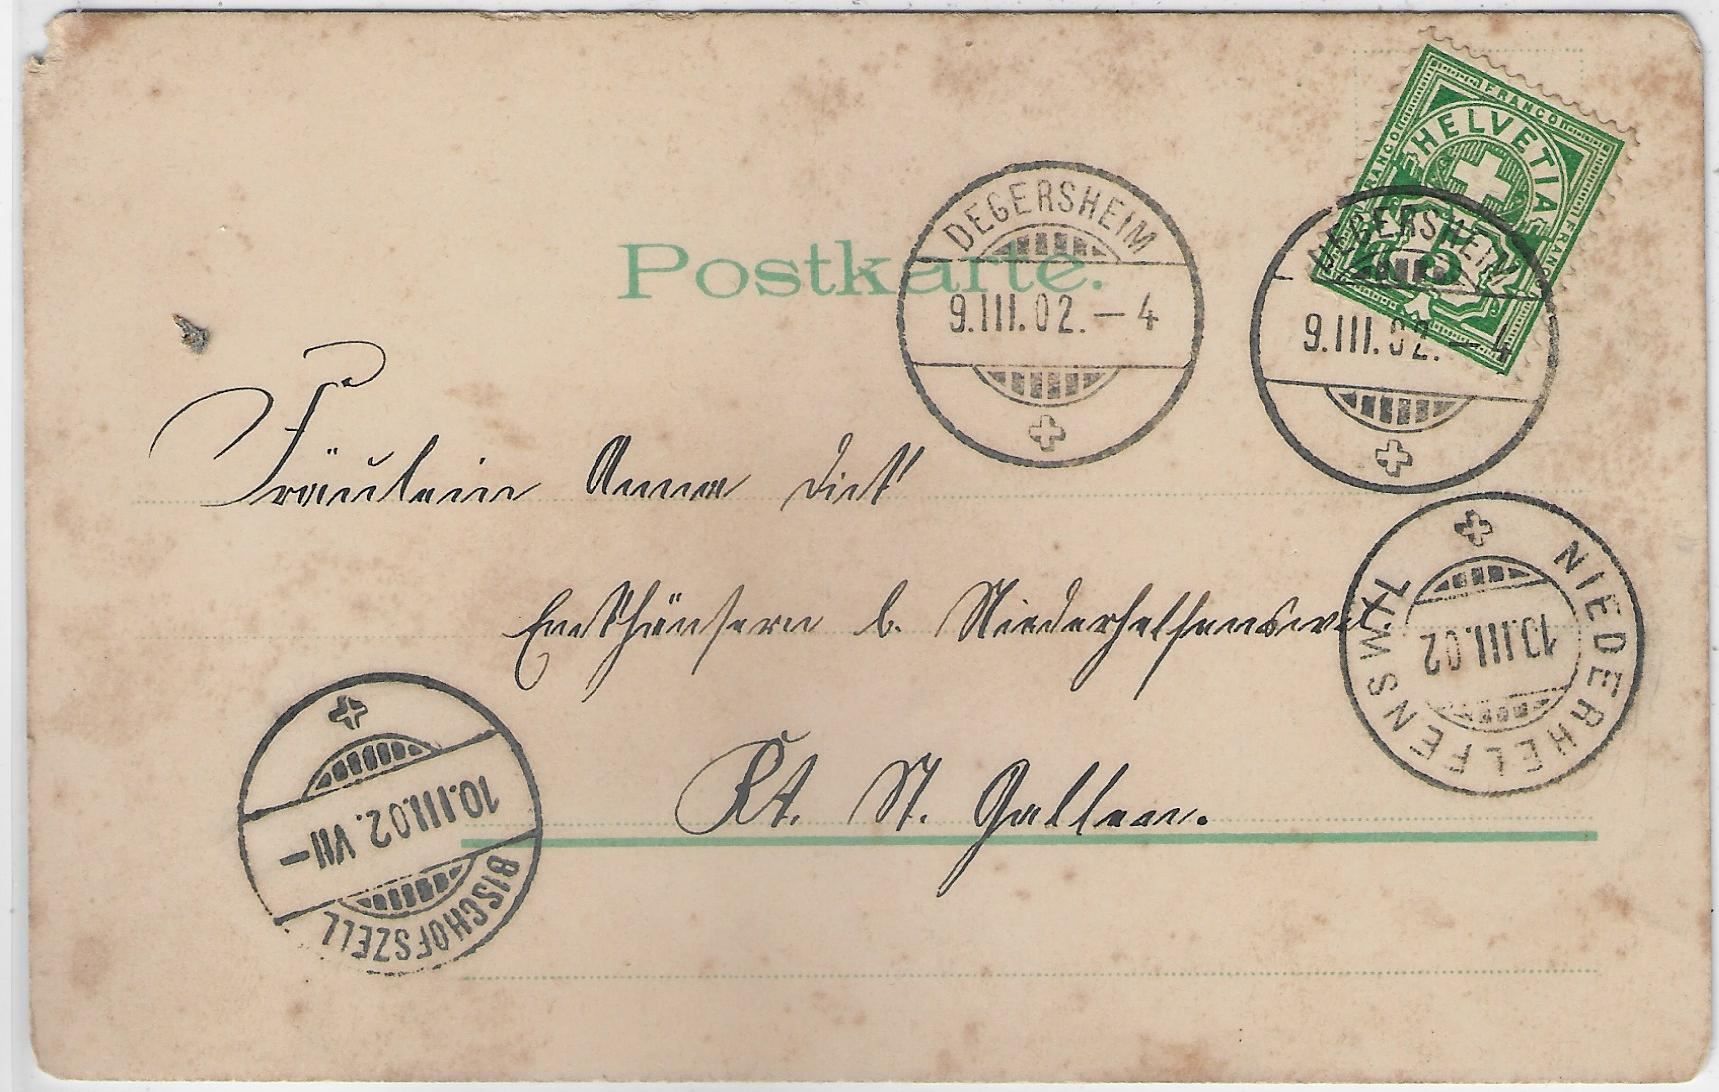 FRANCO
FRANCO
HELVETIA
FRANCO
5
Postkarte.
DEGERSHEIM
9.III.02.–4
DEGERSHEIM
9.III.02.–4
Fräulein Anna
NIEDERHELFENSWIL
10.III.02
b. Niederhelfenswil.
Kt. St. Gallen.
10.III.02.VII–
BISCHOFSZELL